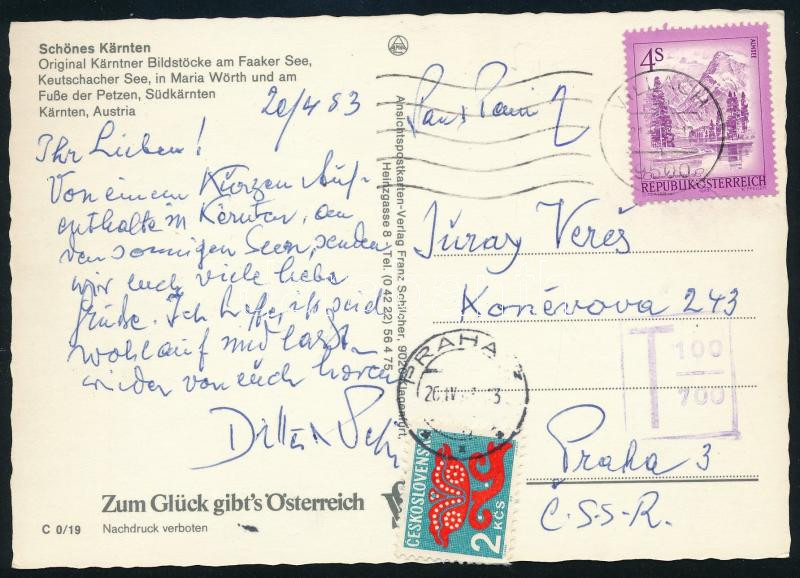 Schönes Kärnten
Original Kärntner Bildstöcke am Faaker See,
Keutschacher See, in Maria Wörth und am
Fuße der Petzen, Südkärnten
Kärnten, Austria
20/4 83
Ihr Lieben!
Von einem kurzen Auf-
enthalte in Kärnten, an
den sonnigen Seen, senden
wir euch viele liebe
Grüße. Ich hoffe, ihr seid
wohlauf und lasst
wieder von euch hören
Zum Glück gibt's Österreich
C 0/19
Nachdruck verboten
Ansichtspostkarten-Verlag Franz Schilcher, 9020 Klagenfurt,
Heinzgasse 8 · Tel. (0 42 22) 56 4 75
4S
ALMSEE
REPUBLIK ÖSTERREICH
VILLACH
9500
Juray Vereš
Konévova 243
T 100
700
Praha 3
Č.S.S.R.
PRAHA
ČESKOSLOVENSKO
2 KČS